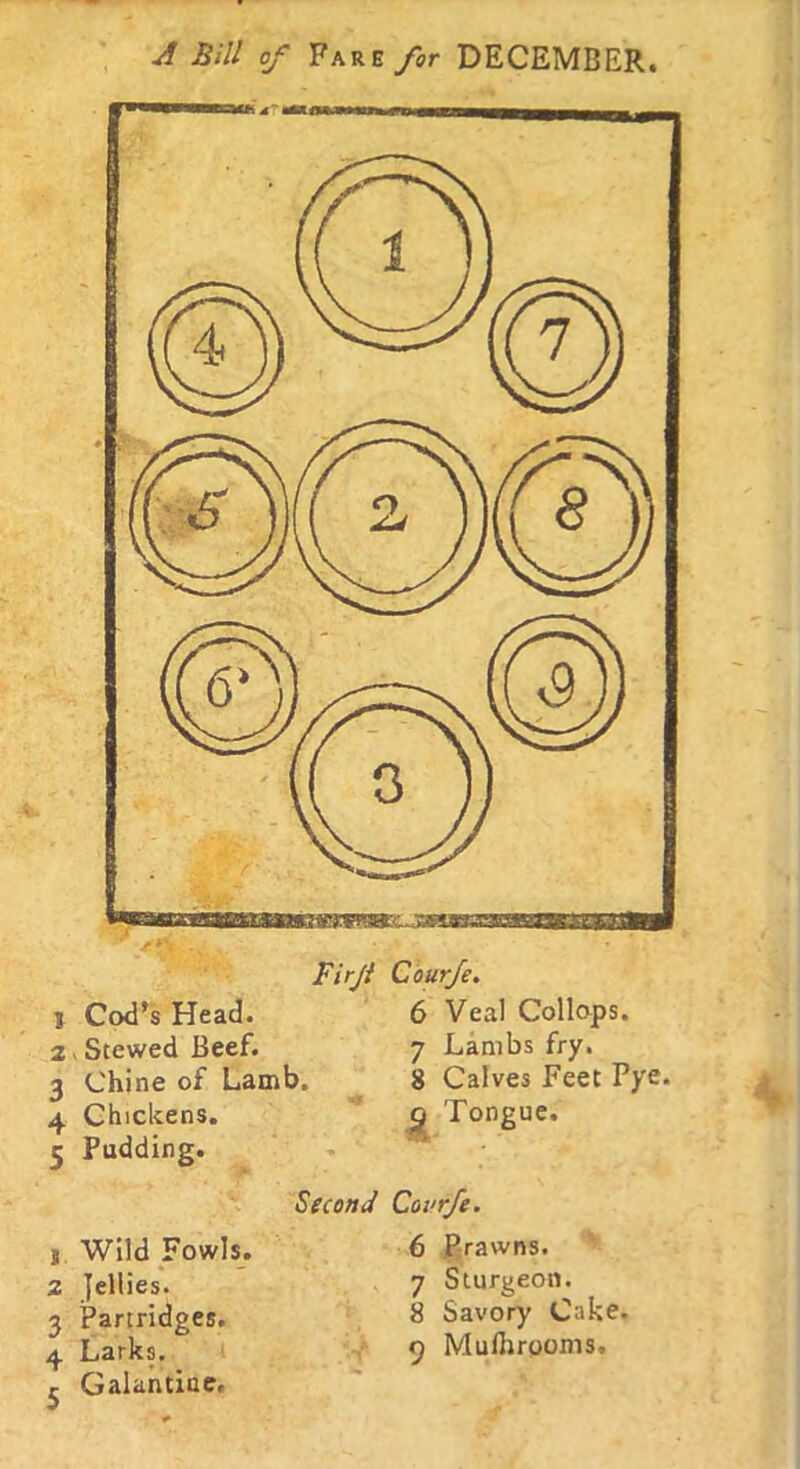 A Bill of FARE for DECEMBER.
1
4
7
5
2
8
6
9
3
Firſt Courſe.
1 Cod's Head.
2 Stewed Beef.
3 Chine of Lamb.
4 Chickens.
5 Pudding.
6 Veal Collops.
7 Lambs fry.
8 Calves Feet Pye.
9 Tongue.
Second Courſe.
1 Wild Fowls.
2 Jellies.
3 Partridges.
4 Larks.
5 Galantine.
6 Prawns.
7 Sturgeon.
8 Savory Cake.
9 Muſhrooms.